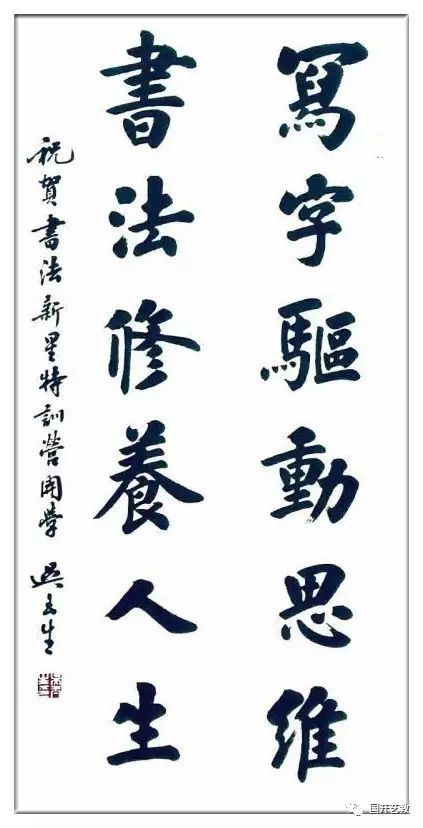 寫字驅動思維
書法修養人生
祝賀書法新星特訓營開學 吳玉生
国开艺教